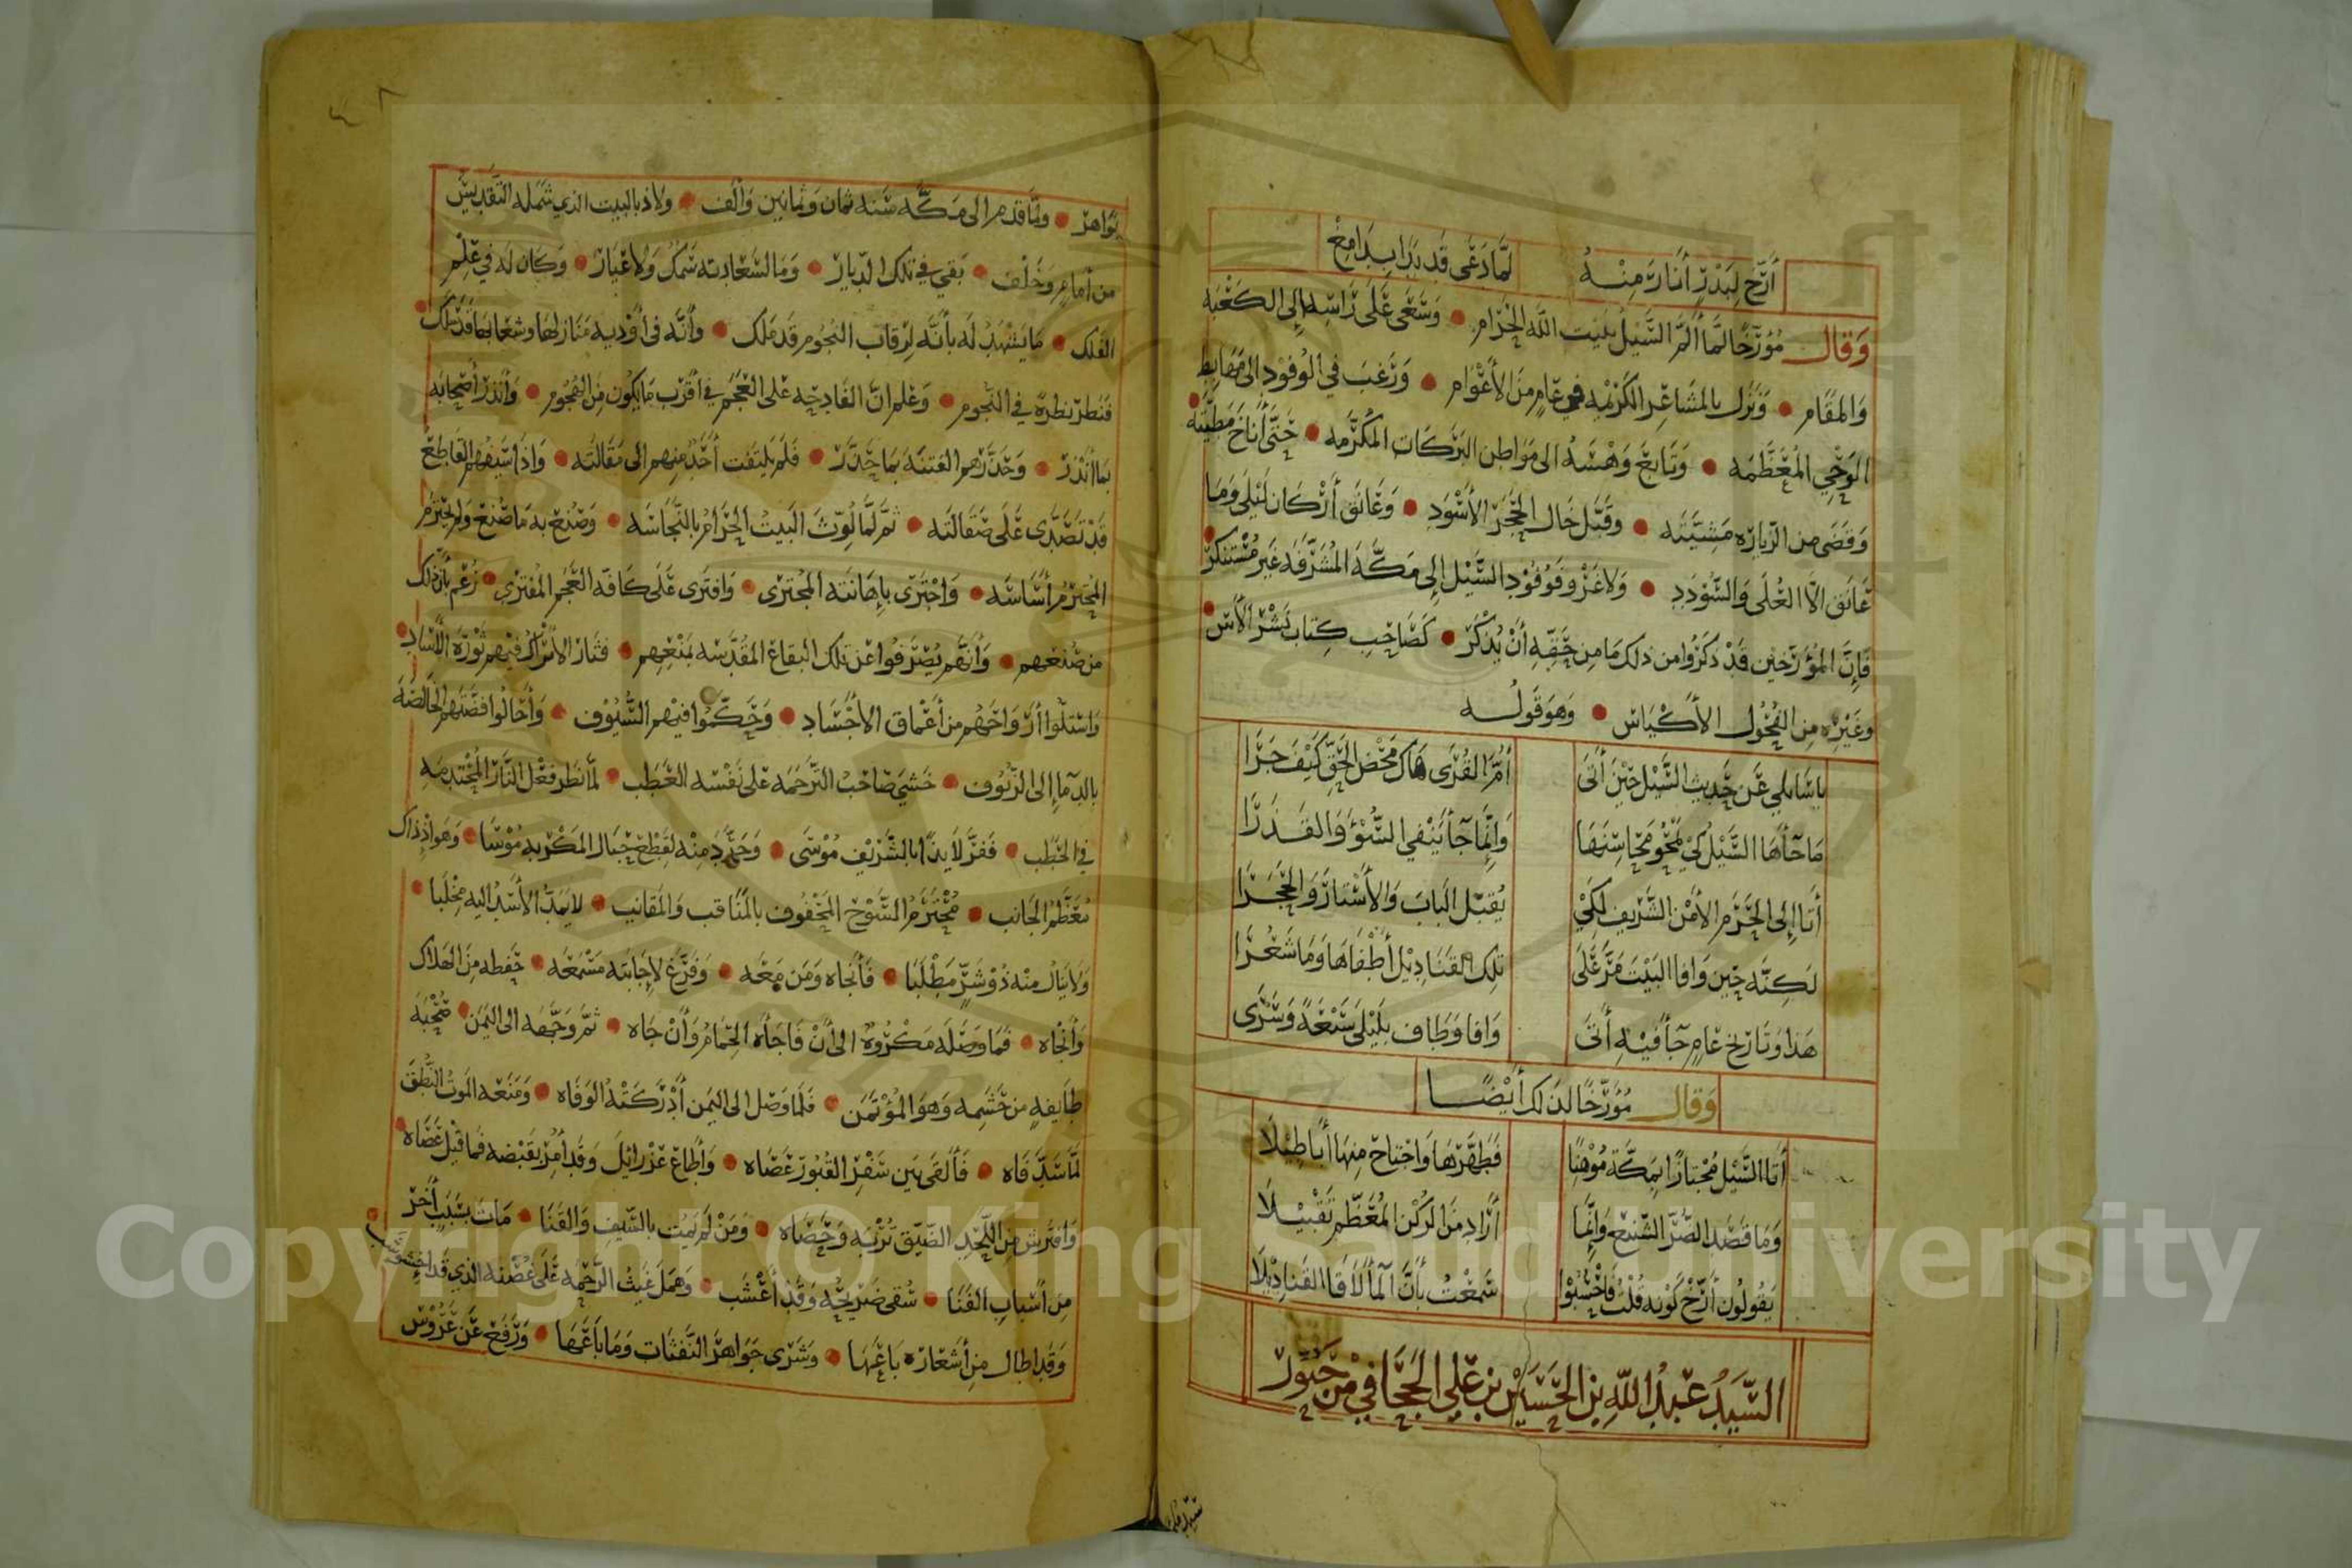 أَرّخ لِبَدْرٍ أَنَارَ مِنْهُ لَمَّا دَعَى قَد بَدَا بِدَامِغ
وَقال مُؤرّخًا لمَّا أَلمَّ السَّيْلُ ببَيت اللّه الحَرَام ● وَسَعَى عَلَى رَاسِهِ إِلى الكَعْبَه
وَالمقَام ● وَنَزل بالمشَاعِر الكَرْيمه في عَامٍ مِنَ الأَعْوَام ● وَرَغبَ في الوُفُود الى مَهَابط
الوَحْي المُعَظَّمَه ● وَتَابعَ وَهْسَهُ الى مَوَاطن البَركَات المكرَّمه ● حَتَّى أَنَاخَ مَطِيَّته
وَقَضَى من الزيَارَه مَشِيَّتَه ● وقَبَّل خَال الحَجَر الأَسْوَدِ ● وَعَانَق أَرْكَان لَيْلى وَمَا
عَانَق الَّا العُلَى وَالسُّؤدَدِ ● وَلَا غَرْو فَوُفُوْد السَّيْل إِلى مَكَّة المُشَرَّفَه غَير مُسْتنكَر
فَإنَّ المُؤَرّخين قَدْ ذكَرُوا من ذلكَ مَا مِن حَقِّهِ أَنْ يُذكَر ● كَصَاحِبِ كِتَاب نَشْر الأُس
وغَيْره مِن الفُحُول الأَكْيَاس ● وَهوَ قَولُه
يا سَائلي عَن حَديث السَّيْل حِيْنَ أَتَى أمَّ القُرَى هَاكَ مَحْضَ الحَقِّ كَيْفَ جَرَا
مَا جَأهَا السَّيْلُ كَيْ يَمْحُو مَحَاسِنَهَا وَإِنَّما جَأ يَنْفي السُّؤ وَالقَذَرَا
أَتَا إِلى الحَرَم الأَمْن الشَّريف لِكَيْ يُقبّل البَابَ وَالأَسْتَارَ وَالحَجَرَا
لَكِنَّه حِين وَافا البَيْتَ مَرَّ عَلَى تلك القَنَادِيْل أَطْفَاهَا وَمَا شَعُرَا
هَذَا وَتَارِيخ عَامٍ جَأ فيْهِ أَتَى وَافا وَطَاف بلَيْلى سَبْعَةً وَسَرَى
وَقال مُؤرّخًا لذَلك أَيْضًا
أَتَا السَّيْل مُجْتازًا بمَكَّة مُوْهنًا فَطهَّرَهَا وَاجْتاحَ منهَا أَبَاطِيْلَا
وَمَا قَصَدَ الضُّرَّ الشَّنيْعَ وَإِنَّما أَرَادَ مِنَ الرُكْن المُعَظَّم تَقْبيْلَا
يَقُولُون أَرّخْ كَوْنه قُلْتُ فَاحْسُبُوْا سَمعْتُ بأَنَّ المأ لَاقَا القَنادِيْلَا
السَّيّدُ عَبْدُ اللّهِ بْن الحُسَيْن بن عَلي الجحَّافي من حَبُور
ولمَّا قدم الى مَكَّه سَنه ثمان وَثمَانين وَأَلف ● ولَاذ بالبيت الذي شمله التَّقديس
من أَمامٍ وَخَلْف ● بَقيَ في تلك الدِّيار ● وَمَا لسَعَادته سَمَكٌ وَلا غبَار ● وَكَان لَه في عِلْم
الفَلك ● مَا يَشْهَدُ لَه بأَنَّه لرقاب النُّجُوم قَد مَلك ● وأنَّه فى أوْديه مَنَازلها وشعَابها قَد سَلك
فنَظر نظرةً في النُّجوم ● وَعَلم انَّ الفَادحَه على العَجَم في اَقْرَب مَا يكُون مِن الهُجُوم ● وَأَنذرَ أَصْحَابَه
بمَا أنْذَر ● وَحَذَّرَهم الفتنَه بمَا حَذَّر ● فَلَم يَلتفت أَحَدٌ منهم الى مَقَالتَه ● وَاذَا سَيْفُهم القَاطعُ
قَدْ تَصَدَّى عَلَى صَقَالَته ● ثمّ لمَّا لُوّثَ البَيتُ الحَرَامُ بالنَّجَاسَه ● وَصُنعَ به مَا صُنع وَلم يحْترَم
المُحتَرمُ أَسَاسَه ● وَاجْتَرَى بإِهَانَته المجْترَى ● وَافترَى عَلَى كَافَه العَجَم المُفتَرى ● زُعمَ بأنّ ذلك
من صُنْعهم ● وَأَنَّهُم يُصَرّفُوا عَن تلك البقَاع المقَدَّسَه بمَنْعِهِم ● فثَار الأَتراك فيْهم ثَوْرَة الآسَاد
وَاستَلّوا أرْوَاحَهُم من أَعْمَاق الاجْسَاد ● وَحَكَّموا فيْهِم السُّيُوف ● وَأَحَالُوا فضَّتهم الخَالصَة
بالدِّمَا إِلى الزُّيُوف ● خَشيَ صَاحبُ التَّرجَمَه عَلى نَفْسه العَطَب ● لمَّا نظر فعْل النَّار المُحْتدمَه
في الحَطب ● فَفَرَّ لَايذًا بالشَّريف مُوْسَى ● وَجَرَّد منْه لقَطْع حِبَال المَكْر به مُوْسَا ● وَهوَ اذْ ذَاك
مُعَظَّمُ الجَانب ● مُحْترَمُ السُّوح المَحْفُوف بالمنَاقب وَالمَقَانب ● لَا يَمُدّ الأَسَدُ اليه مخْلَبا ●
وَلَا يَنَال منْه ذُوْ شَرٍّ مَطْلَبَا ● فَأَنْجَاه وَمَن مَعَه ● وَفَرَّغ لإِجَابَته مَسْمَعَه ● حَفظه مِنَ الهَلَاك
وَأَنْجَاه ● فَمَا وصَلَه مَكْرُوهٌ الى أنْ فَاجَأَه الحِمَامُ وَأَنْ جَاه ● ثمَّ وَجَّهَه الى اليَمَن ● صُحْبَة
طَايفهٍ من حَشَمه وَهوَ المُؤْتَمَن ● فَلمَّا وَصَل الى اليَمَن أَدْرَكَتْهُ الوَفَاه ● وَمَنَعَه الموتُ النُّطْقَ
لمَّا سَدَّ فَاه ● فَأَلقَى بَين سَفْر القُبُور عَصَاه ● وَأَطَاعَ عَزْرائيْلَ وَقَد أُمرَ بقَبْضه فمَا قيْل عَصَاه ●
وَافترَش مِنَ اللَّحْد الضَّيّق تُرْبَه وَحَصَاه ● وَمَنْ لَم يَمُت بالسَّيف وَالقَنَا ● مَاتَ بسَبَبٍ أَخرَ
مِن أَسْبَاب الفَنَا ● سُقىَ ضَريْحُه وَقَد أَعْشَب ● وَهَمَل غَيثُ الرَّحْمَه عَلَى غُصْنه الذي قَد اخشَوْشَب
وَقَد اطال من أَشْعَاره بَاعَهَا ● وَشَرَى جَوَاهِرَ النَّفَثَات وَمَا بَاعَهَا ● وَرَفَعَ عَن عَرُوْس